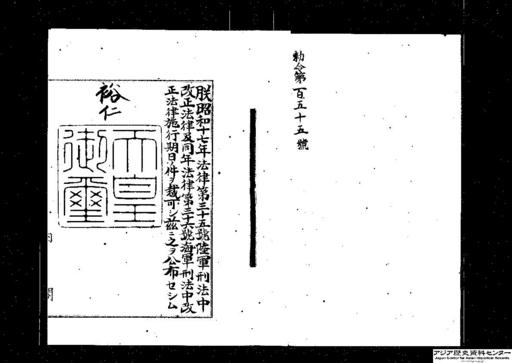 勅令第百五十五號
朕昭和十七年法律第三十五號陸軍刑法中
改正法律及同年法律第三十六號海軍刑法中改
正法律施行期日ノ件ヲ裁可シ茲ニ之ヲ公布セシム
裕仁
天皇
御璽
内閣
アジア歴史資料センター
Japan Center for Asian Historical Records